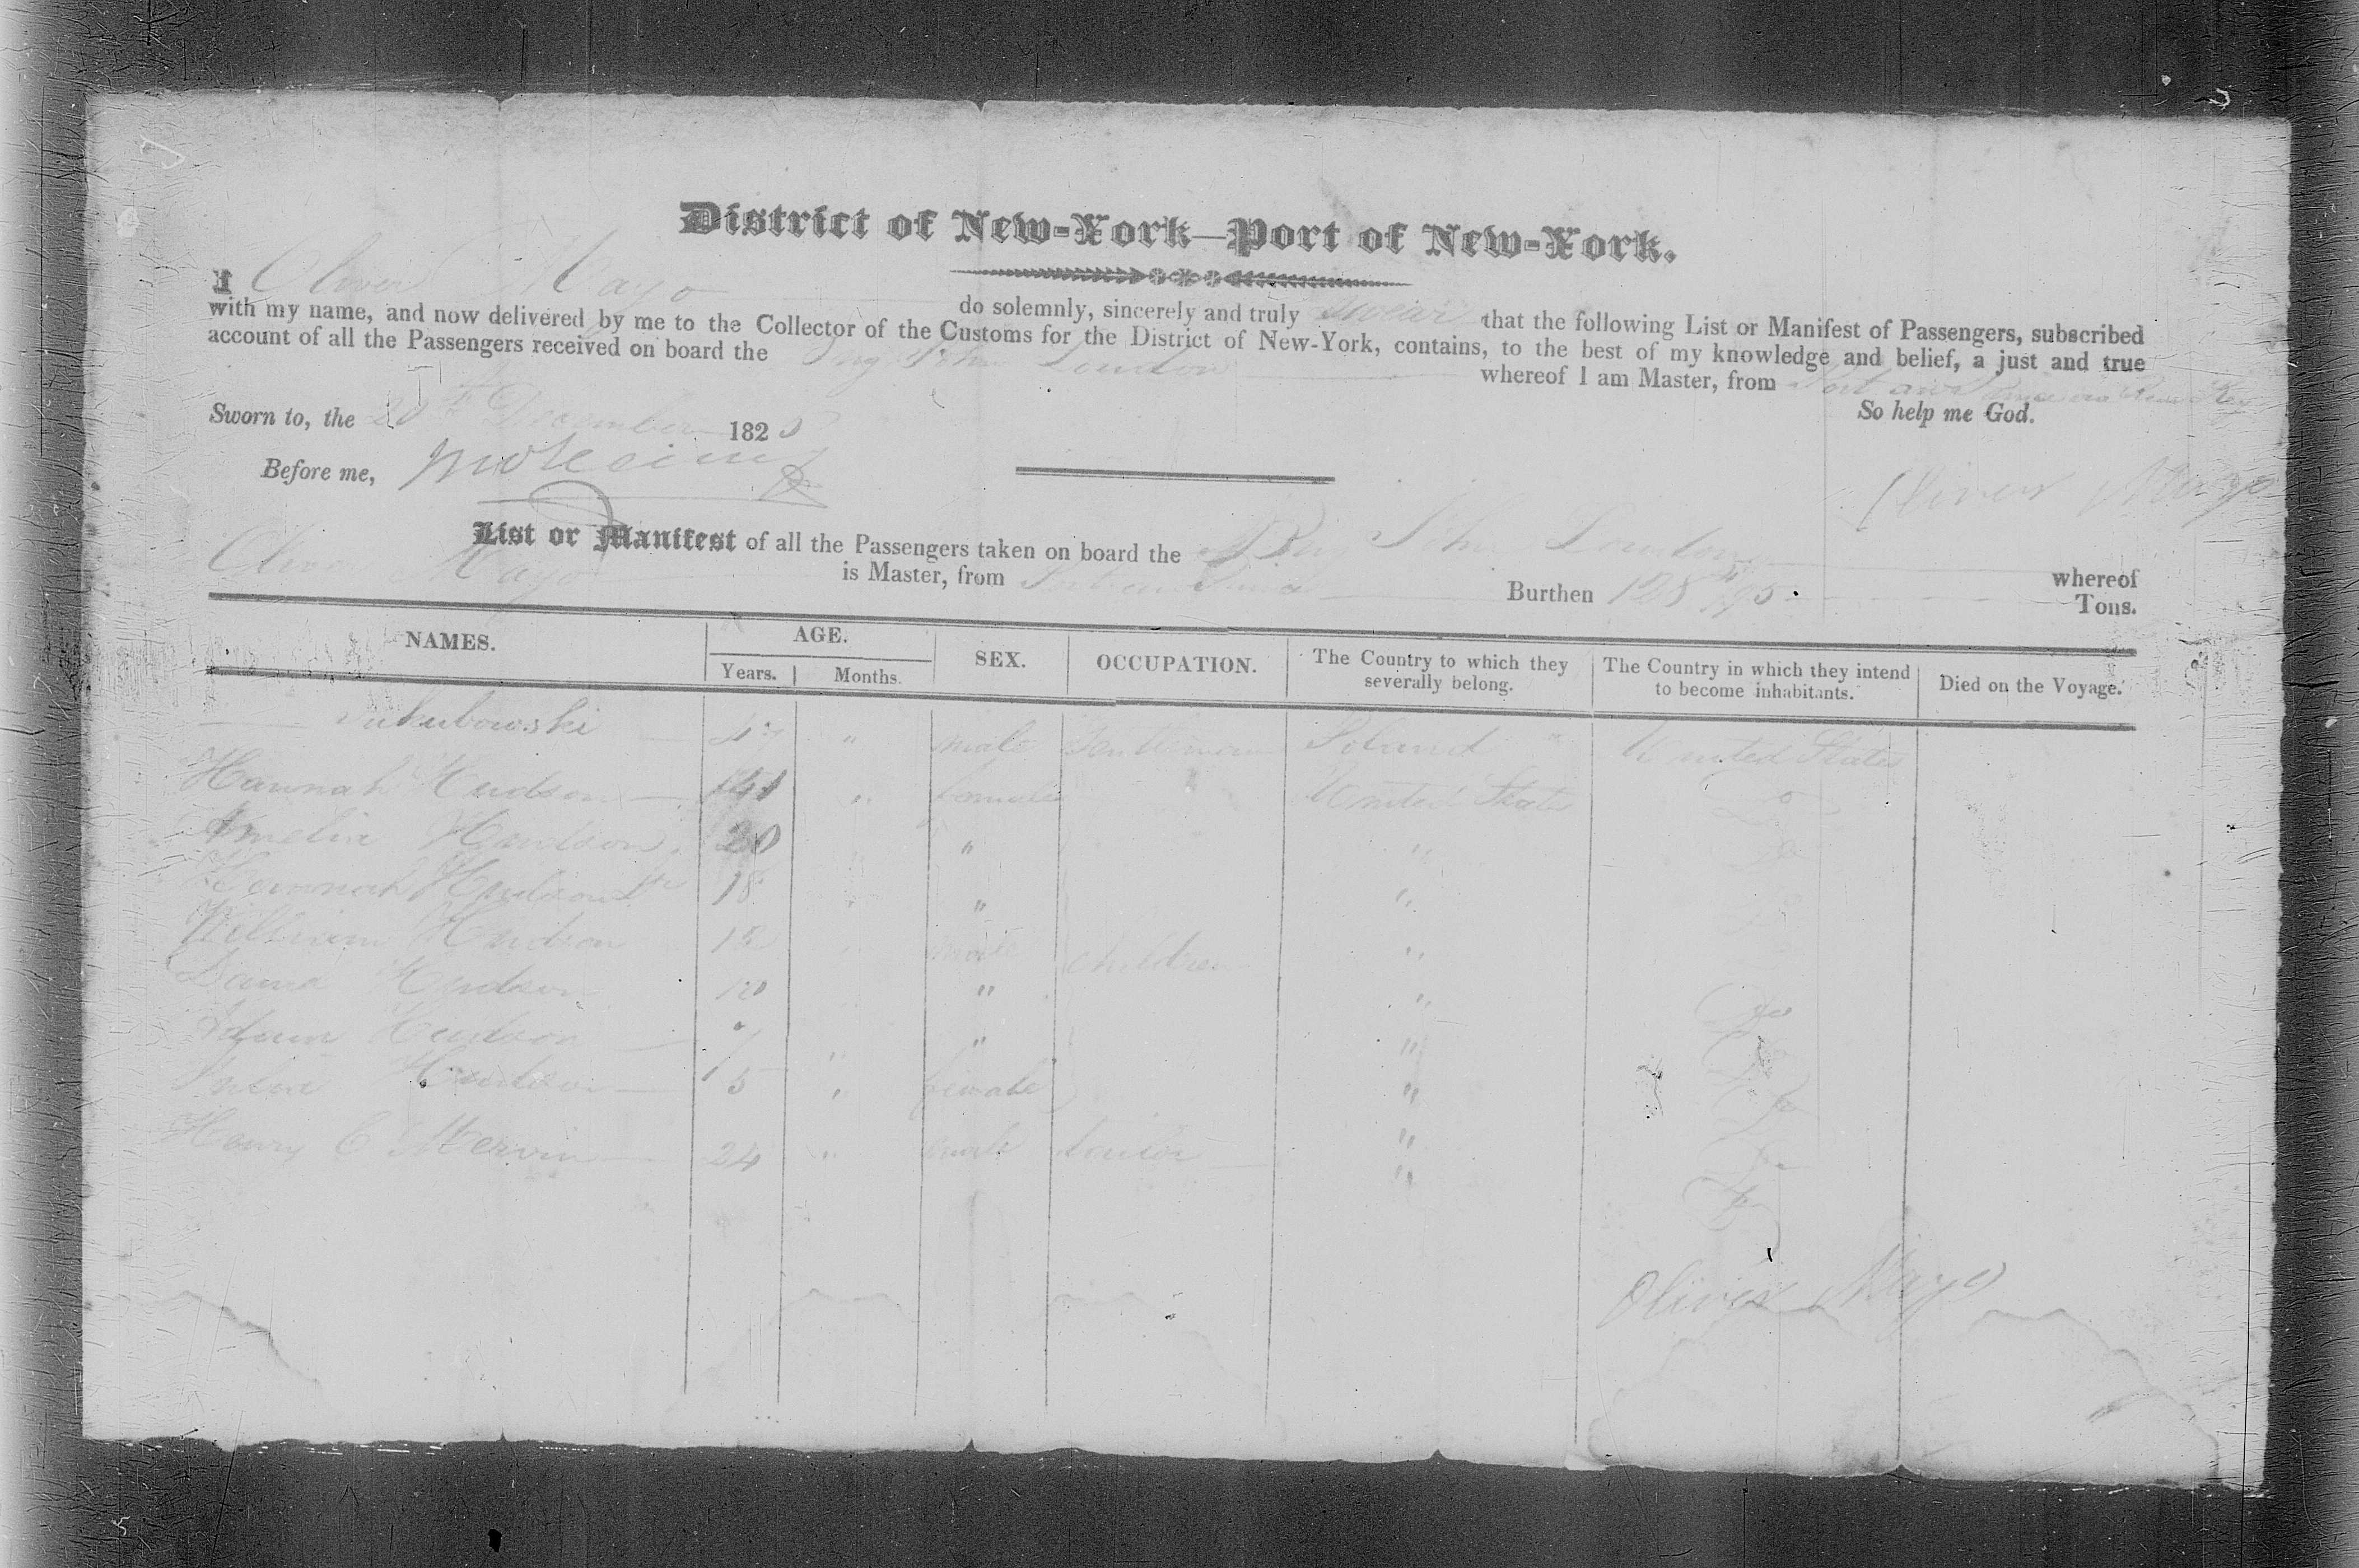 District of New-York—Port of New-York.
I Oliver Mayo do solemnly, sincerely and truly swear that the following List or Manifest of Passengers, subscribed
with my name, and now delivered by me to the Collector of the Customs for the District of New-York, contains, to the best of my knowledge and belief, a just and true
account of all the Passengers received on board the Brig John London whereof I am Master, from Port au Prince
So help me God.
Sworn to, the 20th December 182
Before me,
Oliver Mayo
List or Manifest of all the Passengers taken on board the Brig John London whereof
Oliver Mayo is Master, from Port au Prince Burthen 128 /95 Tons.
NAMES. AGE. Years. Months. SEX. OCCUPATION. The Country to which they severally belong. The Country in which they intend to become inhabitants. Died on the Voyage.
— Jakubowski — 47 " male Gentleman Poland " United States
Hannah Hudson — 41 " female United States Do
Amelia Hudson 20 " " Do
Hannah Hudson Jr 18 " " "
William Hudson 15 " male children "
David Hudson 10 " " Do
Adam Hudson — 7 " " " Do
Hudson — 5 " female " Do
Henry C Mervin — 24 " male tailor — " Do
" Do
Oliver Mayo